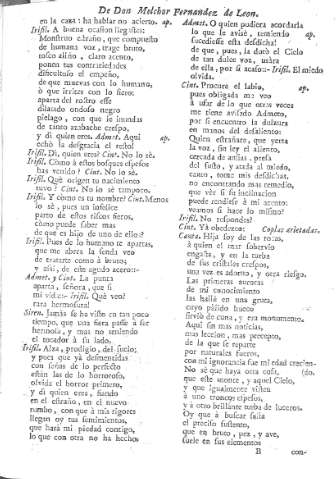 De Don Melchor Fernandez de Leon.
en la caza: ha hablar no acierto. ap.
Irifil. A buena ocasion llegastes:
Monstruo estraño, que compuesto
de humana voz, trage bruto,
tosco aliño, claro acento,
ponen tus contrariedades
dificultoso el empeño,
de que mueras con lo humano,
ò que irrites con lo fiero:
aparta del rostro esse
dilatado undoso negro
pielago, con que le inundas
de tanto azabache crespo,
y di quien eres. Admet. Aqui ap.
echò la desgracia el resto!
Irifil. Di, quien eres? Cint. No lo sè.
Irifil. Còmo à estos bosques espesos
has venido? Cint. No lo sè.
Irifil. Què origen tu nacimiento
tuvo? Cint. No lo sè tampoco.
Irifil. Y còmo es tu nombre? Cint. Menos
lo sè, pues un infelice
parto de estos riscos fieros,
còmo puede saber mas
de que es hijo de uno de ellos?
Irifil. Pues de lo humano te apartas,
que me abres la senda veo
de tratarte como à brutos;
y assi, de este agudo acero--
Admet. y Cint. La punta
aparta, señora, que si
mi vida-- Irifil. Què veo?
rara hermosura!
Siren. Jamàs se ha visto en tan poco
tiempo, que una fiera passe à ser
hermosa, y mas no teniendo
el tocador à su lado.
Irifil. Alza, prodigio, del suelo;
y pues que ya desmentidas
con señas de lo perfecto
estàn las de lo horroroso,
olvida el horror primero,
y di quien eres, fiando
en el estraño, en el nuevo
rumbo, con que à mis rigores
llegan oy tus sentimientos,
que harà mi piedad contigo,
lo que con otra no ha hechos
Admet. O quien pudiera acordarla
lo que la avisè, temiendo ap.
sucediesse esta desdicha!
de que, pues, la darà el Cielo
de tan dulce voz, usàra
de ella, por si acaso:- Irifil. El miedo
olvida.
Cint. Procure el labio, ap.
pues obligada me veo
à usar de lo que otras veces
me tiene avisado Admeto,
por si encuentro la dulzura
en manos del desaliento:
Quien estrañare, que yerta
la voz, sin ley el aliento,
cercada de ansias, presa
del susto, y atada al miedo,
canto, torne mis desdichas,
no encontrando mas remedio,
que vèr si su inclinacion
puede rendirse à mi acento:
veamos si hace lo mismo?
Irifil. No respondes?
Cint. Yà obedezco: Coplas arietadas.
Canta. Hija soy de las rocas,
à quien el mar sobervio
engasta, y en la tarèa
de sus cristales crespos,
una vez es adorno, y otra riesgo.
Las primeras auroras
de mi conocimiento
las hallè en una gruta,
cuyo pàlido hueco
sirviò de cuna, y era monumento.
Aqui sin mas noticias,
mas leccion, mas precepto,
de la que se reparte
por naturales fueros,
con mi ignorancia fue mi edad crecien-
No sè què haya otra cosa, (do.
que este monte, y aquel Cielo,
y que igualmente visten
à uno troncos espesos,
y à otro brillante turba de luceros.
Oy que à buscar salìa
el preciso sustento,
que en bruto, pez, y ave,
suele en sus elementos
B con-